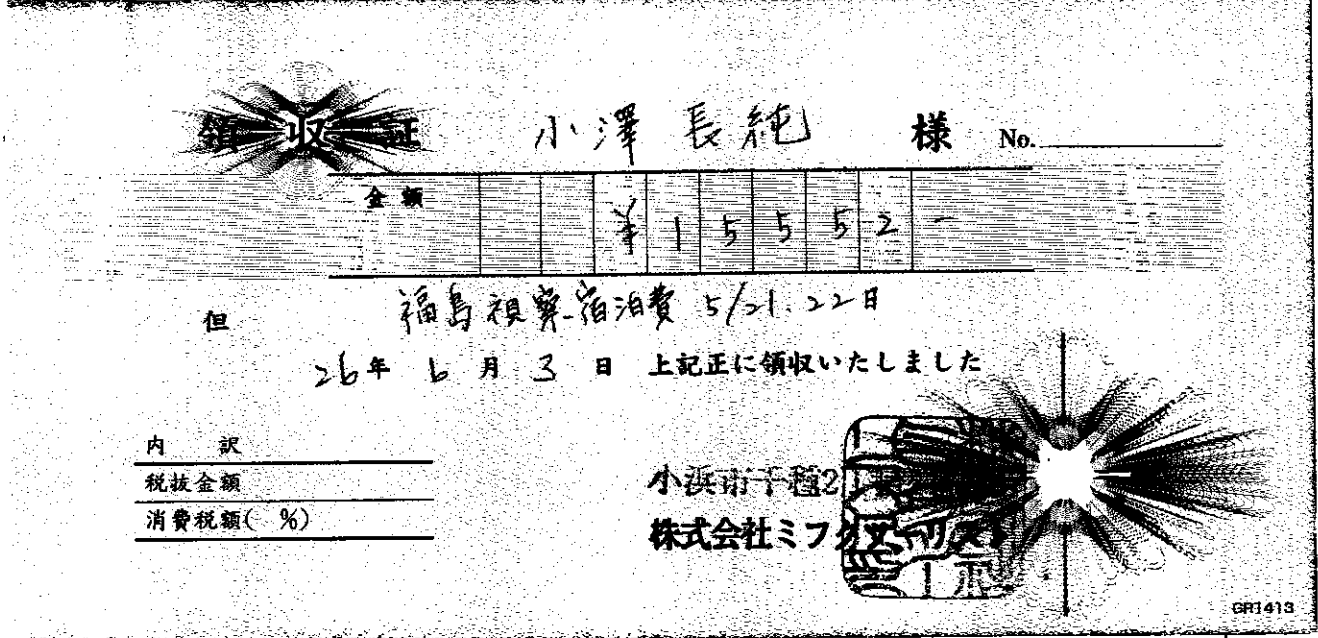 領収証 小澤 長純 様 No.
金額 ¥15552-
但 福島視察宿泊費 5/21.22日
26年 6月 3日 上記正に領収いたしました
内 訳
税抜金額
消費税額( %)
小浜市千種2
株式会社ミフクツーリスト
GR1413